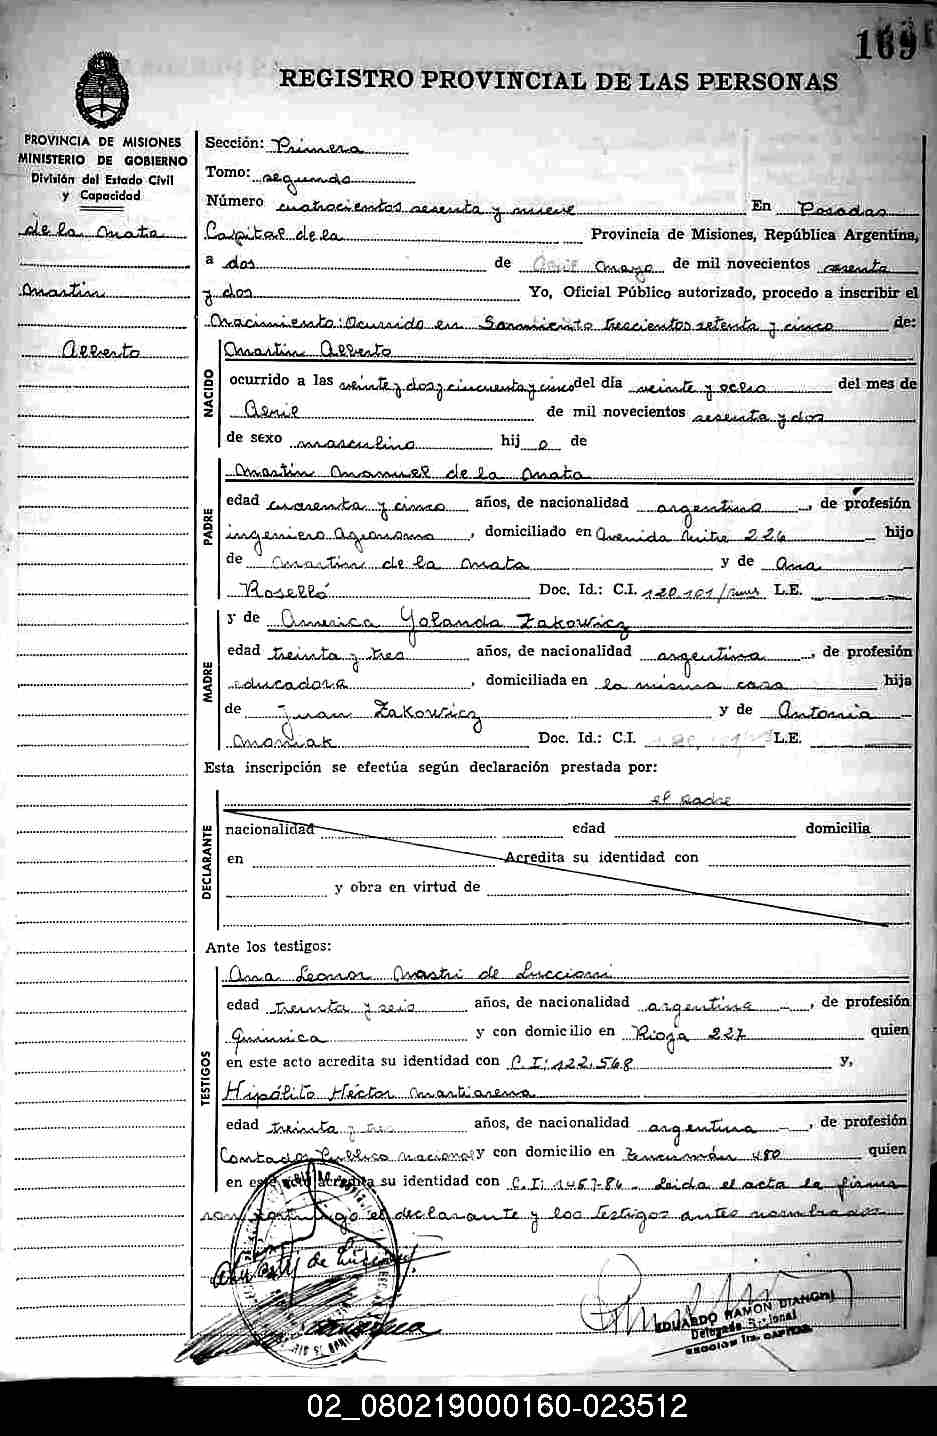 169
REGISTRO PROVINCIAL DE LAS PERSONAS
PROVINCIA DE MISIONES
MINISTERIO DE GOBIERNO
División del Estado Civil
y Capacidad
de la Mata
Martin
Alberto
Sección: Primera
Tomo: segundo
Número cuatrocientos sesenta y nueve En Posadas
Capital de la Provincia de Misiones, República Argentina,
a dos de Abril mayo de mil novecientos sesenta
y dos Yo, Oficial Público autorizado, procedo a inscribir el
Nacimiento: Ocurrido en Sarmiento trescientos setenta y cinco de:
NACIDO
Martin Alberto
ocurrido a las veinte y dos y cincuenta y cinco del día veinte y ocho del mes de
Abril de mil novecientos sesenta y dos
de sexo masculino hijo de
PADRE
Martin Manuel de la Mata
edad cuarenta y cinco años, de nacionalidad argentino, de profesión
ingeniero Agronomo, domiciliado en Avenida Mitre 226 hijo
de Martin de la Mata y de Ana
Roselló Doc. Id.: C.I. 120.101 L.E.
MADRE
y de America Yolanda Zakowicz
edad treinta y tres años, de nacionalidad argentina, de profesión
educadora, domiciliada en la misma casa hija
de Juan Zakowicz y de Antonia
Moniak Doc. Id.: C.I. L.E.
Esta inscripción se efectúa según declaración prestada por:
DECLARANTE
el padre
nacionalidad edad domicilia
en Acredita su identidad con
y obra en virtud de
Ante los testigos:
TESTIGOS
Ana Leonor Mastri de Luccioni
edad treinta y seis años, de nacionalidad argentina, de profesión
Quimica y con domicilio en Rioja 227 quien
en este acto acredita su identidad con C.I: 122.568 y,
Hipólito Héctor Martiarena
edad treinta y tres años, de nacionalidad argentina, de profesión
Contador Publico nacional y con domicilio en Tucumán 480 quien
en este acto acredita su identidad con C.I: Leida el acta la firma
conmigo el declarante y los testigos antes nombrados
de Luccioni
EDUARDO RAMON DIANGHI
Delegado Regional
SECCION 1ra. CAPITAL
02_080219000160-023512